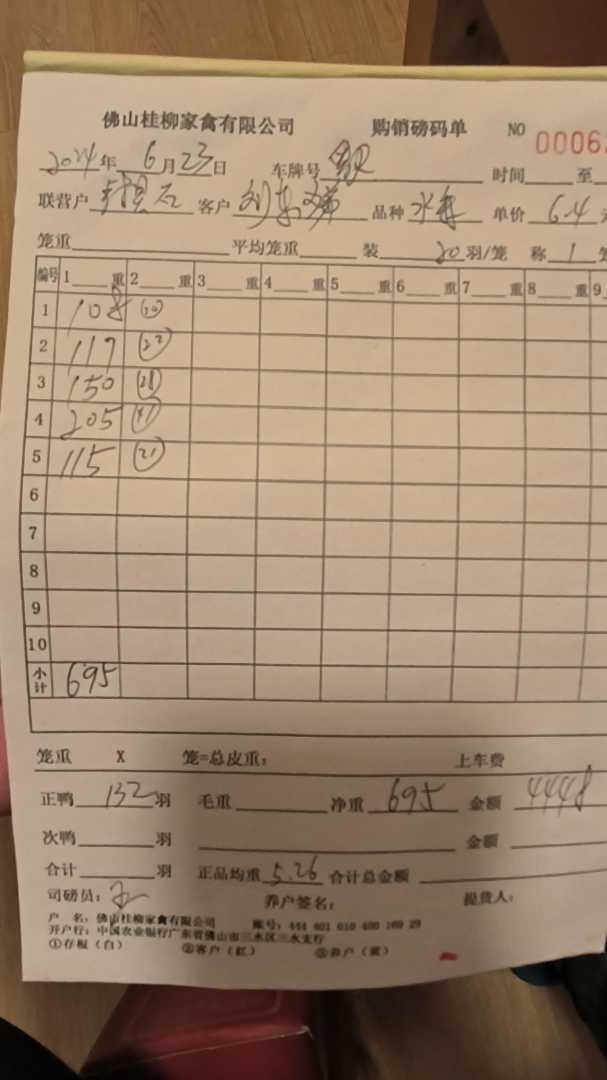 佛山桂柳家禽有限公司 购销磅码单 NO 0006
2024年 6月23日 车牌号 时间 至
联营户 客户 刘 品种 水 单价 6.4 元
笼重 平均笼重 装 20 羽/笼 称 1 笼
编号 1 重 2 重 3 重 4 重 5 重 6 重 7 重 8 重 9
1 108 (20)
2 117 (22)
3 150 (28)
4 205 (41)
5 115 (21)
6
7
8
9
10
小计 695
笼重 X 笼=总皮重: 上车费
正鸭 132 羽 毛重 净重 695 金额 4448
次鸭 羽 金额
合计 羽 正品均重 5.26 合计总金额
司磅员: 养户签名: 提货人:
户 名: 佛山桂柳家禽有限公司 账号: 444 601 010 400 169 29
开户行: 中国农业银行广东省佛山市三水区三水支行
①存根(白) ②客户(红) ③养户(黄)